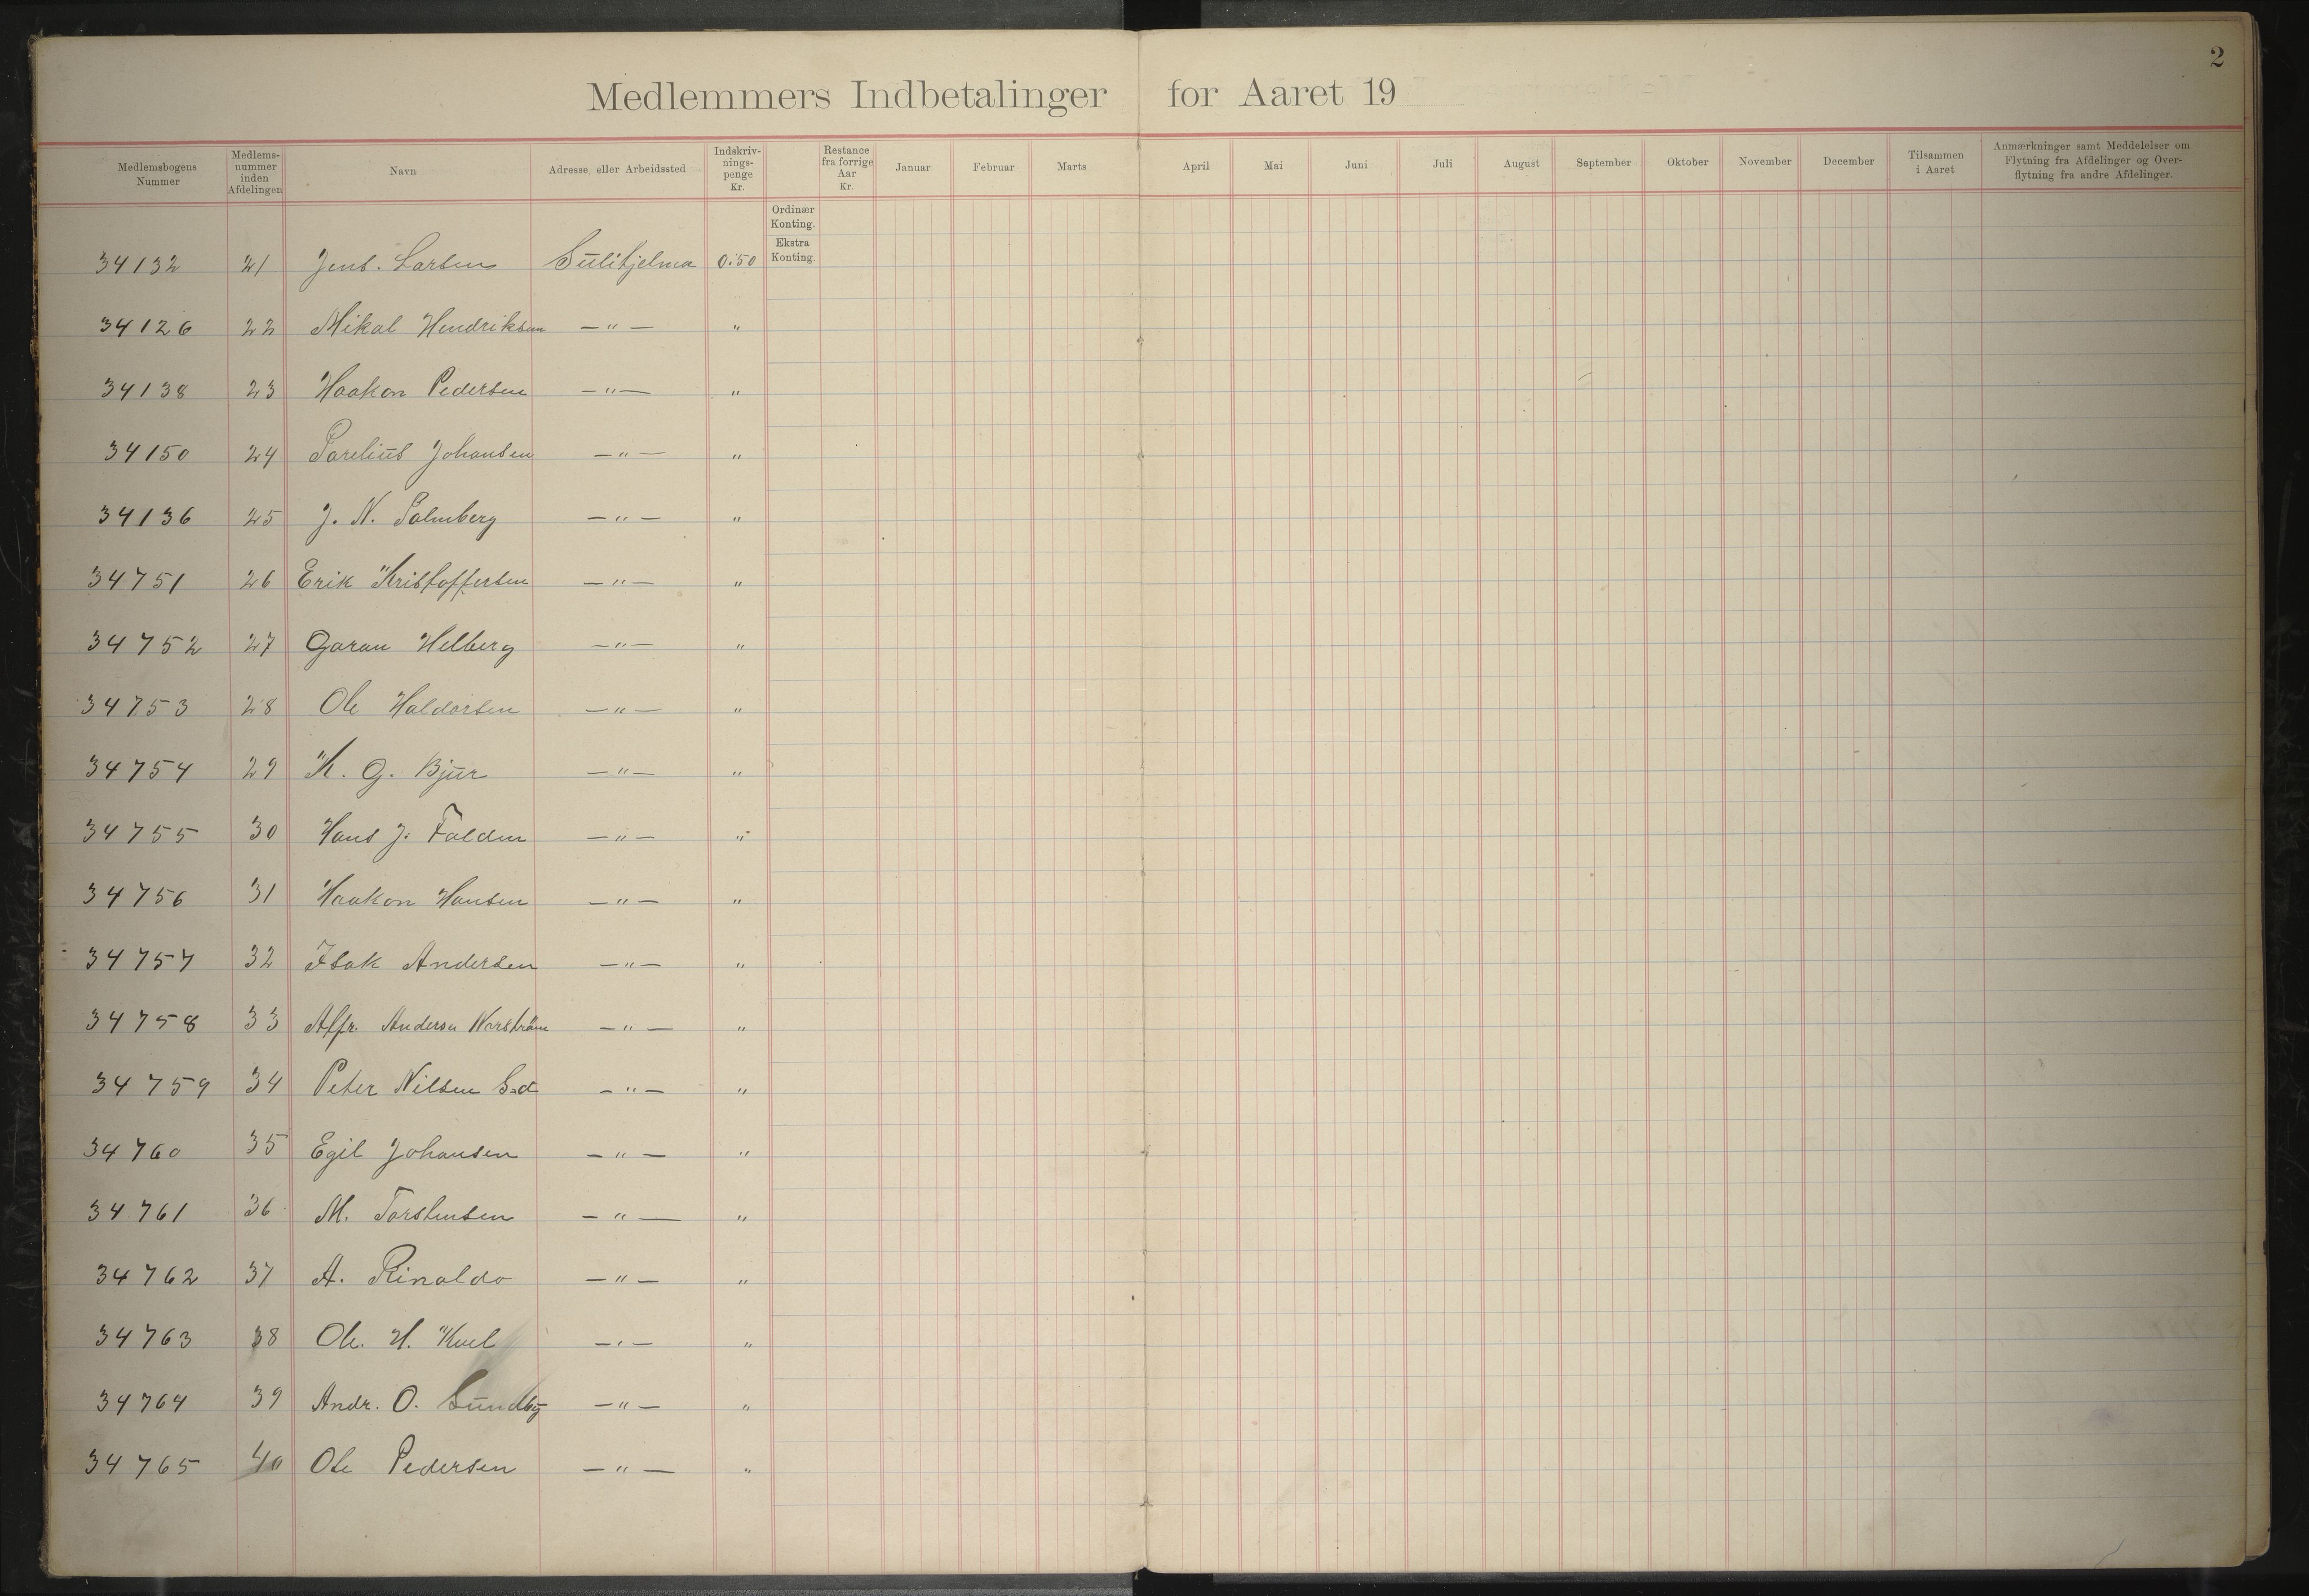 2
Medlemmers Indbetalinger for Aaret 19
Medlemsbogens Nummer
Medlems-nummer inden Afdelingen
Navn
Adresse eller Arbeidssted
Indskriv-nings-penge Kr.
Restance fra forrige Aar Kr.
Januar
Februar
Marts
April
Mai
Juni
Juli
August
September
Oktober
November
December
Tilsammen i Aaret
Anmærkninger samt Meddelelser om Flytning fra Afdelinger og Over-flytning fra andre Afdelinger.
Ordinær Konting.
Ekstra Konting.
34132 21 Jens. Larsen Sulitjelma 0.50
34126 22 Mikal Hendriksen —"— "
34138 23 Haakon Pedersen —"— "
34150 24 Parelius Johansen —"— "
34136 25 J. N. Palmberg —"— "
34751 26 Erik Kristoffersen —"— "
34752 27 Garan Helberg —"— "
34753 28 Ole Haldorsen —"— "
34754 29 K. G. Bjur —"— "
34755 30 Hans J. Falden —"— "
34756 31 Haakon Hansen —"— "
34757 32 Isak Andersen —"— "
34758 33 Alfr. Anderson Norström —"— "
34759 34 Peter Nilsen —"— "
34760 35 Egil Johansen —"— "
34761 36 M. Torstensen —"— "
34762 37 A. Rinaldo —"— "
34763 38 Ole. H. —"— "
34764 39 Andr. O. Sundby —"— "
34765 40 Ole Pedersen —"— "